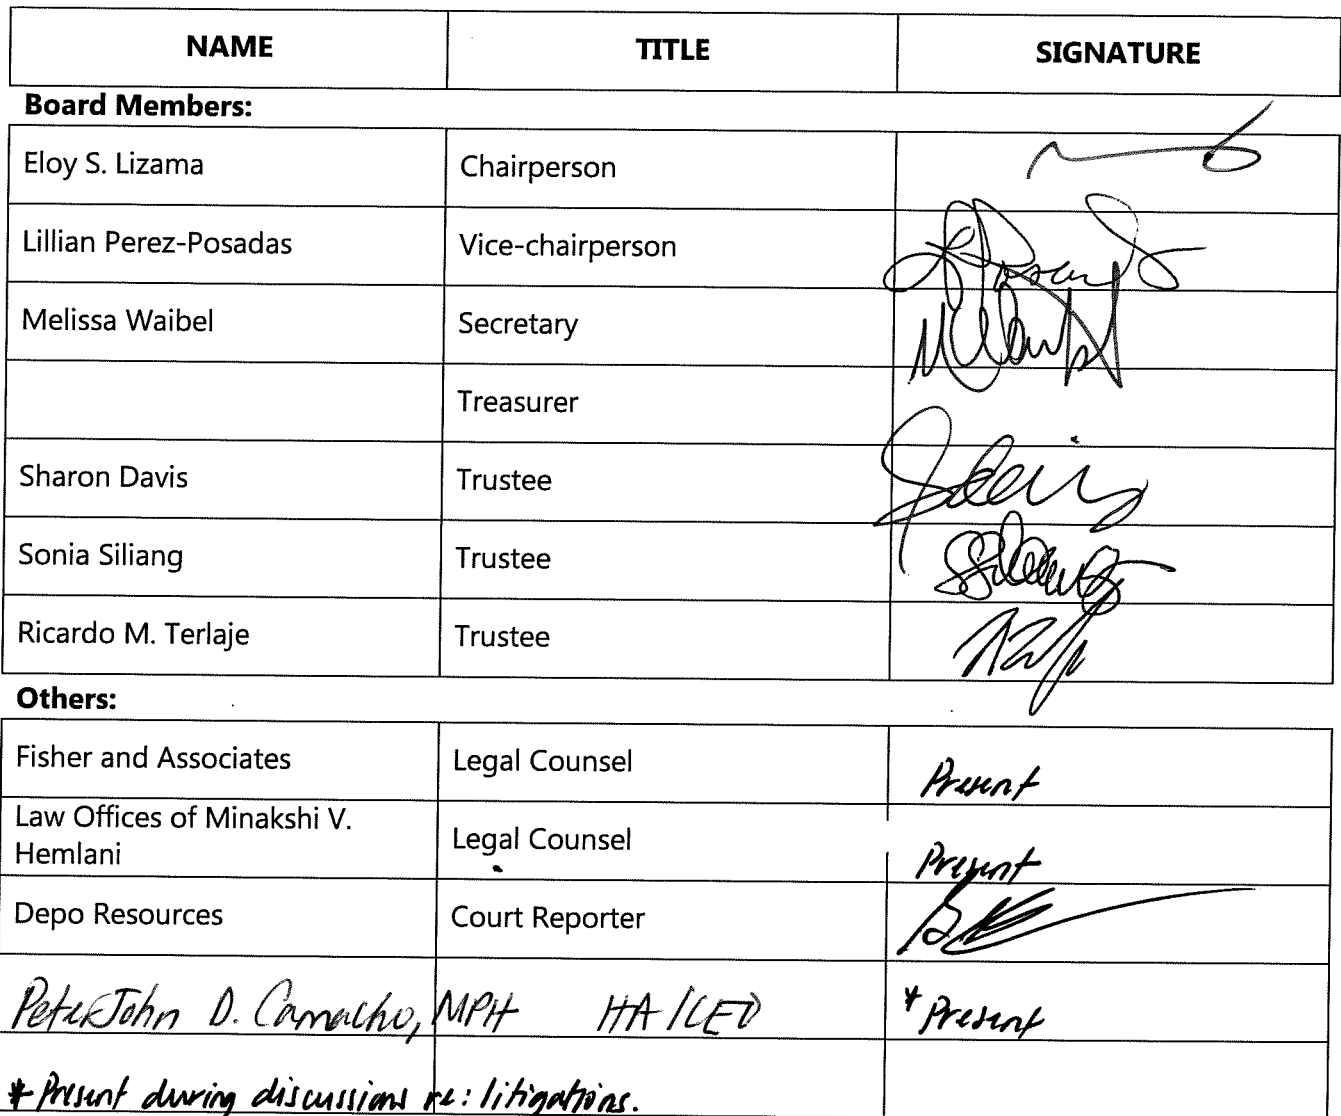 NAME TITLE SIGNATURE
Board Members:
Eloy S. Lizama Chairperson
Lillian Perez-Posadas Vice-chairperson
Melissa Waibel Secretary
Treasurer
Sharon Davis Trustee
Sonia Siliang Trustee
Ricardo M. Terlaje Trustee
Others:
Fisher and Associates Legal Counsel Present
Law Offices of Minakshi V.
Hemlani Legal Counsel Present
Depo Resources Court Reporter
PeterJohn D. Camacho, MPH HA/CEO *Present
* Present during discussions re: litigations.